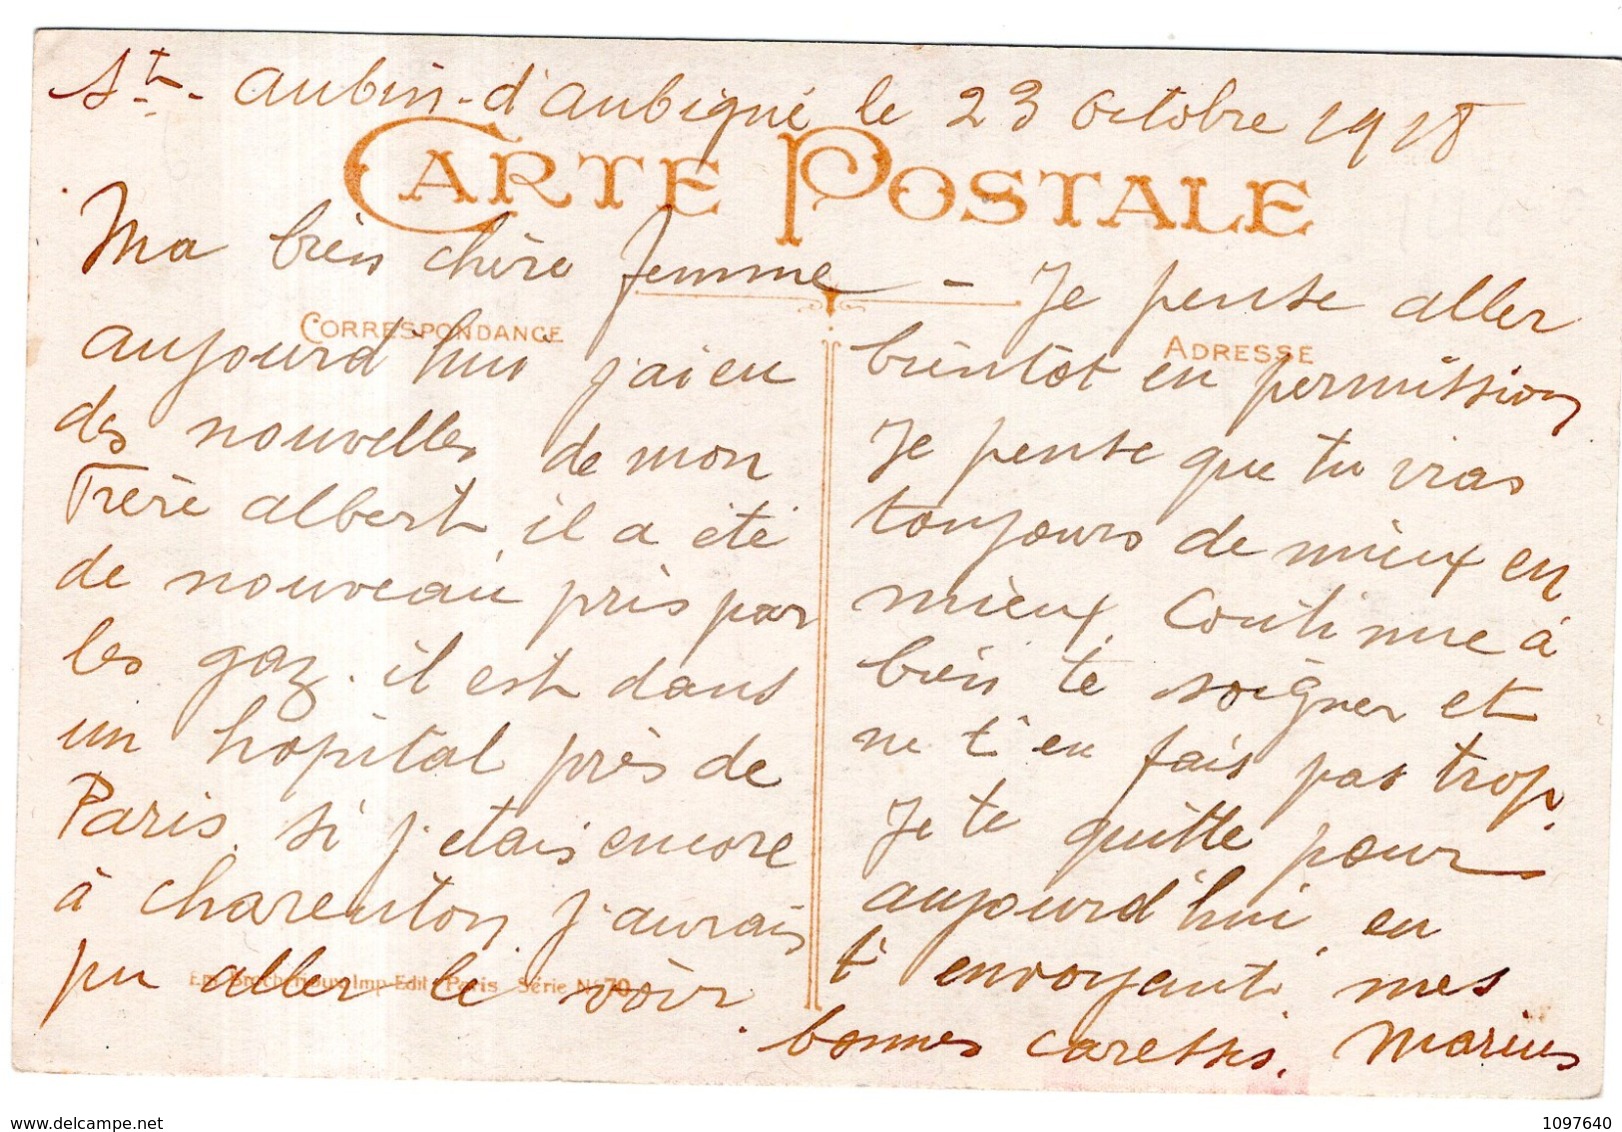 St-Aubin-d'aubigné le 23 octobre 1918
CARTE POSTALE
Ma bien chère femme -
CORRESPONDANCE
aujourd'hui j'ai eu
des nouvelles de mon
Frère albert, il a été
de nouveau pris par
les gaz. il est dans
un hôpital près de
Paris. si j'etais encore
à charenton j'aurais
pu aller le voir.
Imp-Edit. Paris Série No 70
Je pense aller
ADRESSE
bientôt en permission
Je pense que tu vias
toujours de mieux en
mieux. Continue à
bien te soigner et
ne t'en fais pas trop.
Je te quitte pour
aujourd'hui, en
t'envoyant mes
bonnes caresses. Marius
delcampe.net
1097640